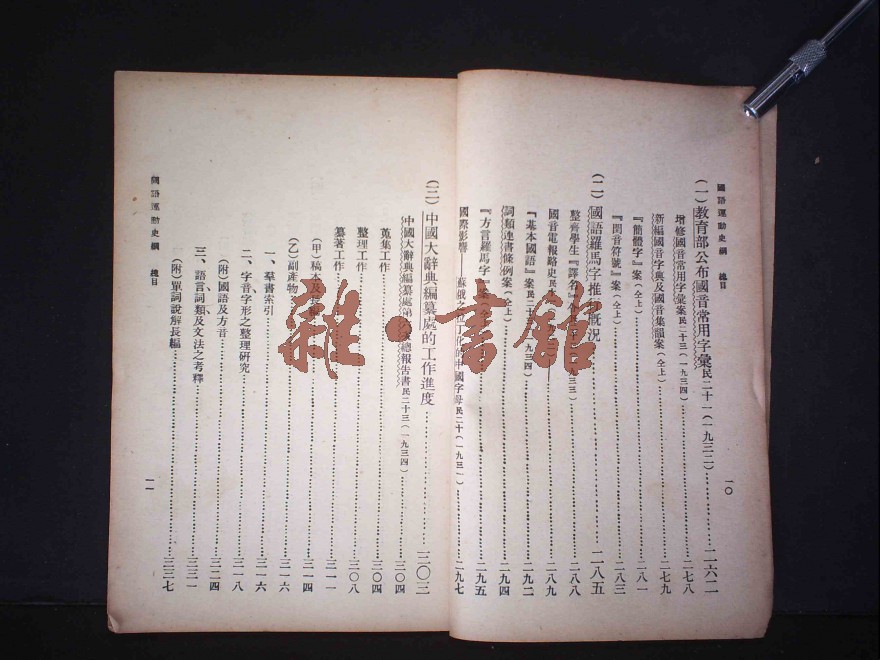 國語運動史綱 總目
一〇
(一)教育部公布國音常用字彙民二十一(一九三二)……二六二
增修國音常用字彙案民二十三(一九三四)……二七八
新編國音字典及國音集韻案(仝上)……二七九
『簡體字』案(仝上)……二八一
『閏音符號』案(仝上)……二八三
(二)國語羅馬字推行概況……二八五
整齊學生『譯名』……二八八
國音電報略史民……二八九
『基本國語』案民二十三(一九三四)……二九二
詞類連書條例案(仝上)……二九四
『方言羅馬字』案(仝上)……二九五
國際影響——蘇俄之……丁化的中國字母民二十(一九三一)……二九七
(三)中國大辭典編纂處的工作進度……三〇三
中國大辭典編纂處第……次總報告書民二十三(一九三四)……三〇四
蒐集工作……三〇四
整理工作……三〇八
纂著工作……三一一
(甲)稿本及長編……三一四
(乙)副產物……三一六
一、羣書索引……三一六
二、字音字形之整理研究……三一八
(附)國語及方音……三二四
三、語言詞類及文法之考釋……三三一
(附)單詞說解長編……三三七
國語運動史綱 總目
一一
雜·書館